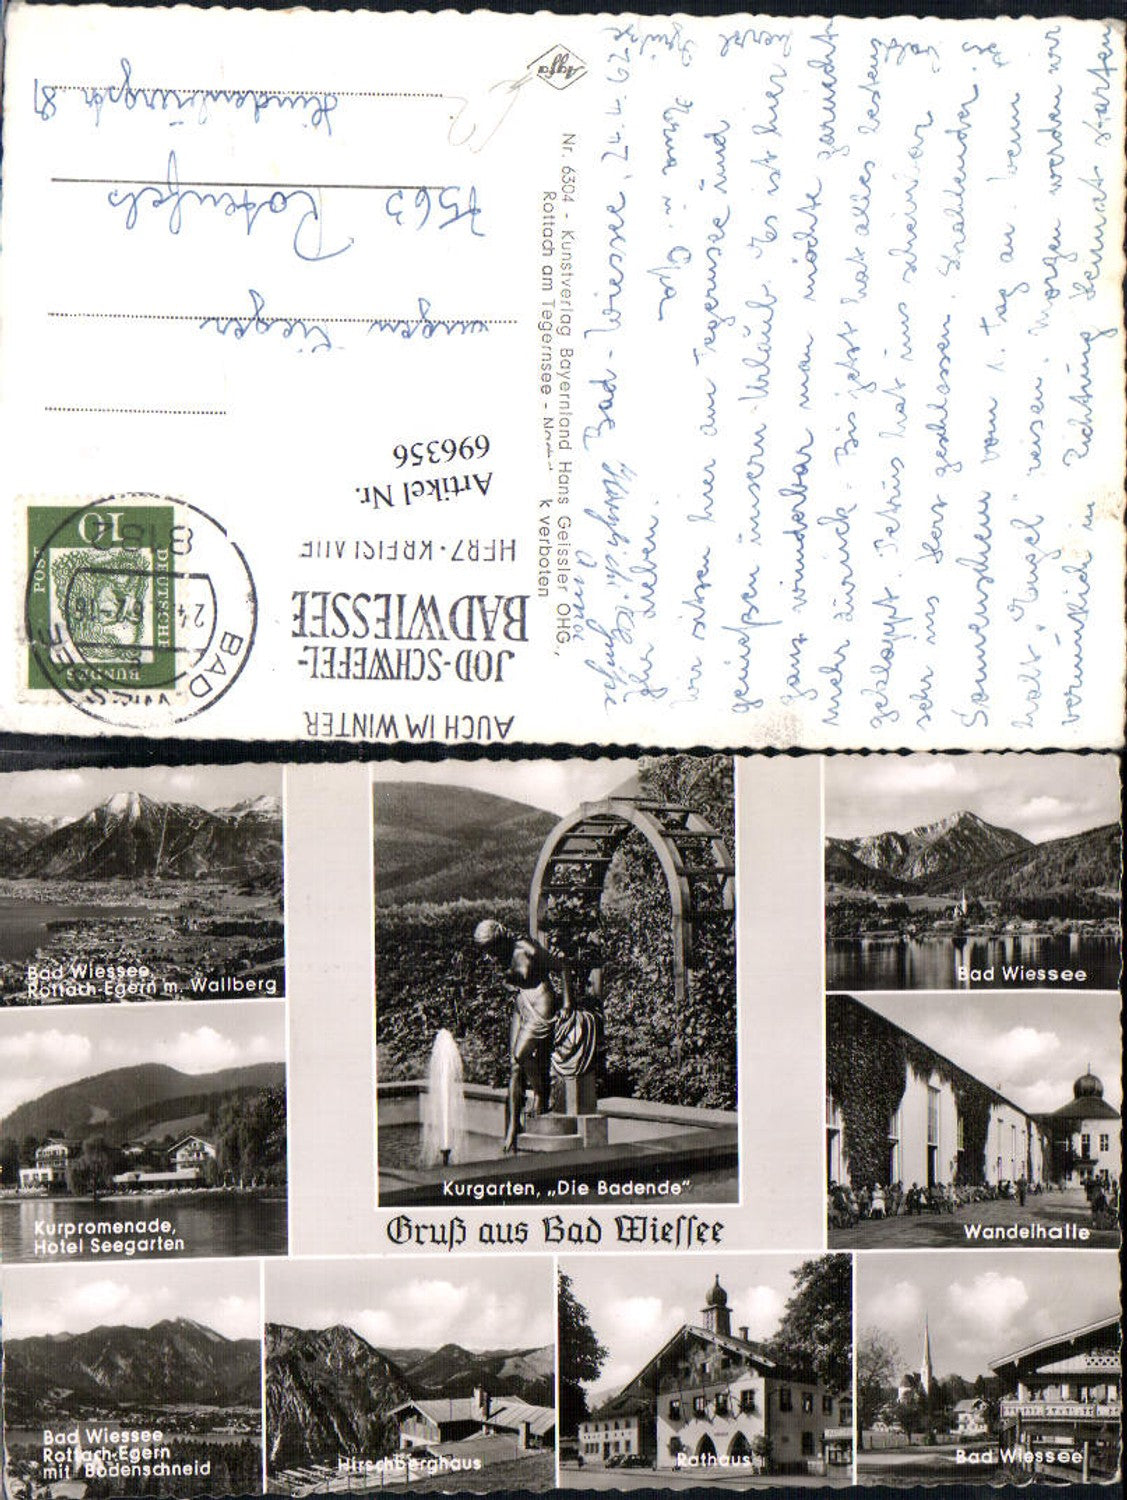 Bad-Wiessee 27.4.62
Ihr Lieben.
Oma u. Opa
Wir sitzen hier am Tegernsee und
genießen unsern Urlaub. Es ist hier
ganz wunderbar man möchte garnicht
mehr zurück. Bis jetzt hat alles bestens
geklappt. Petrus hat uns scheinbar
sehr ins Herz geschlossen. Strahlender
Sonnenschein vom 1. Tag an. Wenn
halt "Engel" reisen. Morgen werden wir
vermutlich in Richtung Heimat starten
Nr. 6304 - Kunstverlag Bayernland Hans Geissler OHG.,
Rottach am Tegernsee - k verboten
Agfa
AUCH IM WINTER
JOD-SCHWEFEL-
BAD WIESSEE
HERZ·KREISLAUF
Artikel Nr.
696356
DEUTSCHE
BUNDES
POST
10
BAD WIESSEE
8182
7563 Rotenfels
Hindenburgstr. 81
Bad Wiessee,
Rottach-Egern m. Wallberg
Kurgarten, „Die Badende"
Bad Wiessee
Kurpromenade,
Hotel Seegarten
Gruß aus Bad Wiessee
Wandelhalle
Bad Wiessee
Rottach-Egern
mit Bodenschneid
Hirschberghaus
Rathaus
Bad Wiessee